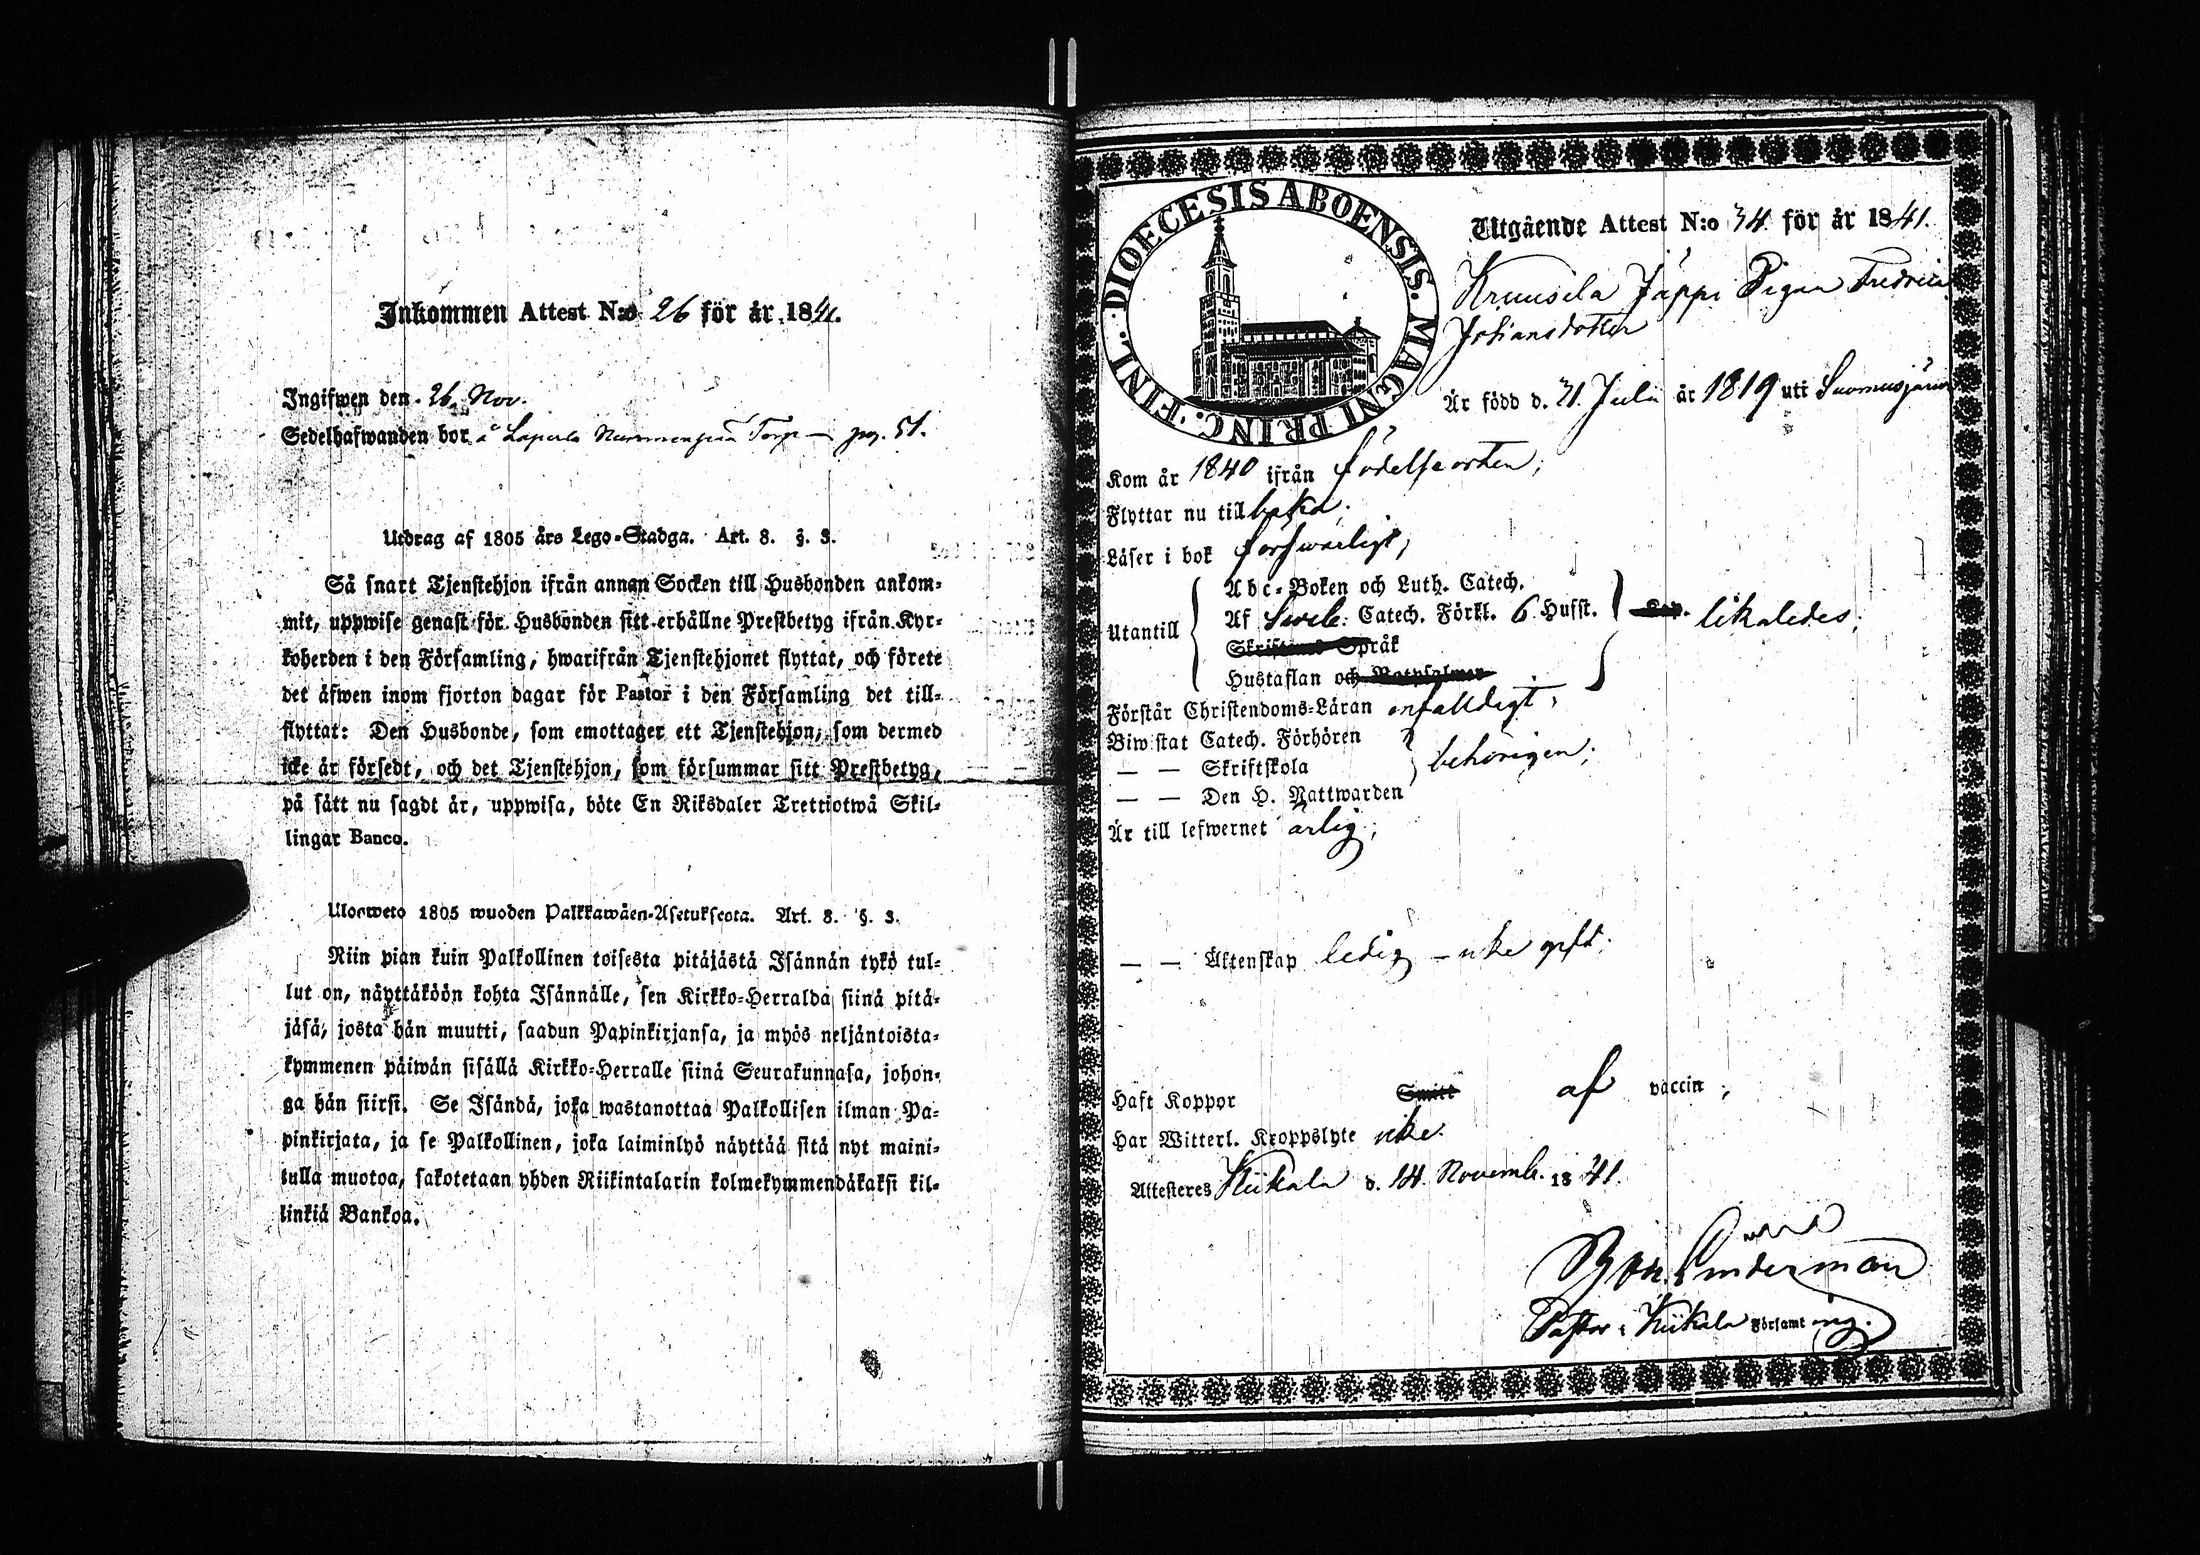 Inkommen Attest N:o 26 för år 1841.
Ingifwen den 26 Nov.
Sedelhafwanden bor å Laperla Nummenpää Torp — pag. 51.
Utdrag af 1805 års Lego-Stadga. Art. 8. §. 3.
Så snart Tjenstehjon ifrån annan Socken till Husbonden ankom-
mit, uppwise genast för Husbonden sitt erhållne Prestbetyg ifrån Kyr-
koherden i den Församling, hwarifrån Tjenstehjonet flyttat, och förete
det äfwen inom fjorton dagar för Pastor i den Församling det till-
flyttat: Den Husbonde, som emottager ett Tjenstehjon, som dermed
icke är försedt, och det Tjenstehjon, som försummar sitt Prestbetyg,
på sätt nu sagdt är, uppwisa, böte En Riksdaler Trettiotwå Skil-
lingar Banco.
Ulosweto 1805 wuoden Palkkawäen-Asetuksesta. Art. 8. §. 3.
Niin pian kuin Palkollinen toisesta pitäjästä Isännän tykö tul-
lut on, näyttäköön kohta Isännälle, sen Kirkko-Herralda siinä pitä-
jäsä, josta hän muutti, saadun Papinkirjansa, ja myös neljäntoista-
kymmenen päiwän sisällä Kirkko-Herralle siinä Seurakunnasa, johon-
ga hän siirsi. Se Isändä, joka wastanottaa Palkollisen ilman Pa-
pinkirjata, ja se Palkollinen, joka laiminlyö näyttää sitä nyt maini-
tulla muotoa, sakotetaan yhden Riikintalarin kolmekymmendäkaksi kil-
linkiä Bankoa.
DIOECESIS ABOENSIS. MAGNI PRINC. FINL.
Utgående Attest N:o 34. för år 1841.
Kruusila Jäppi Pigan Fredrica
Johansdotter
Är född d. 31. Julii år 1819 uti Suomusjärvi
Kom år 1840 ifrån födelseorten;
Flyttar nu tillbaka.
Läser i bok forswarligt;
Utantill
Abc-Boken och Luth. Catech.
Af Sweb. Catech. Förkl. 6 Husst. Cap. likaledes;
Skriftens Språk
Hustaflan och Botpsalmer
Förstår Christendoms-Läran enfalldigt;
Biwistat Catech. Förhören
— — Skriftskola behörigen;
— — Den H. Nattwarden
Är till lefwernet ärlig;
— — Äktenskap ledig — icke gift;
Haft Koppor Smitt af vaccin;
Har Witterl. Kroppslyte icke.
Attesteres Kiikala d. 14. Novemb. 1841.
Linderman
Pastor i Kiikala Församling.